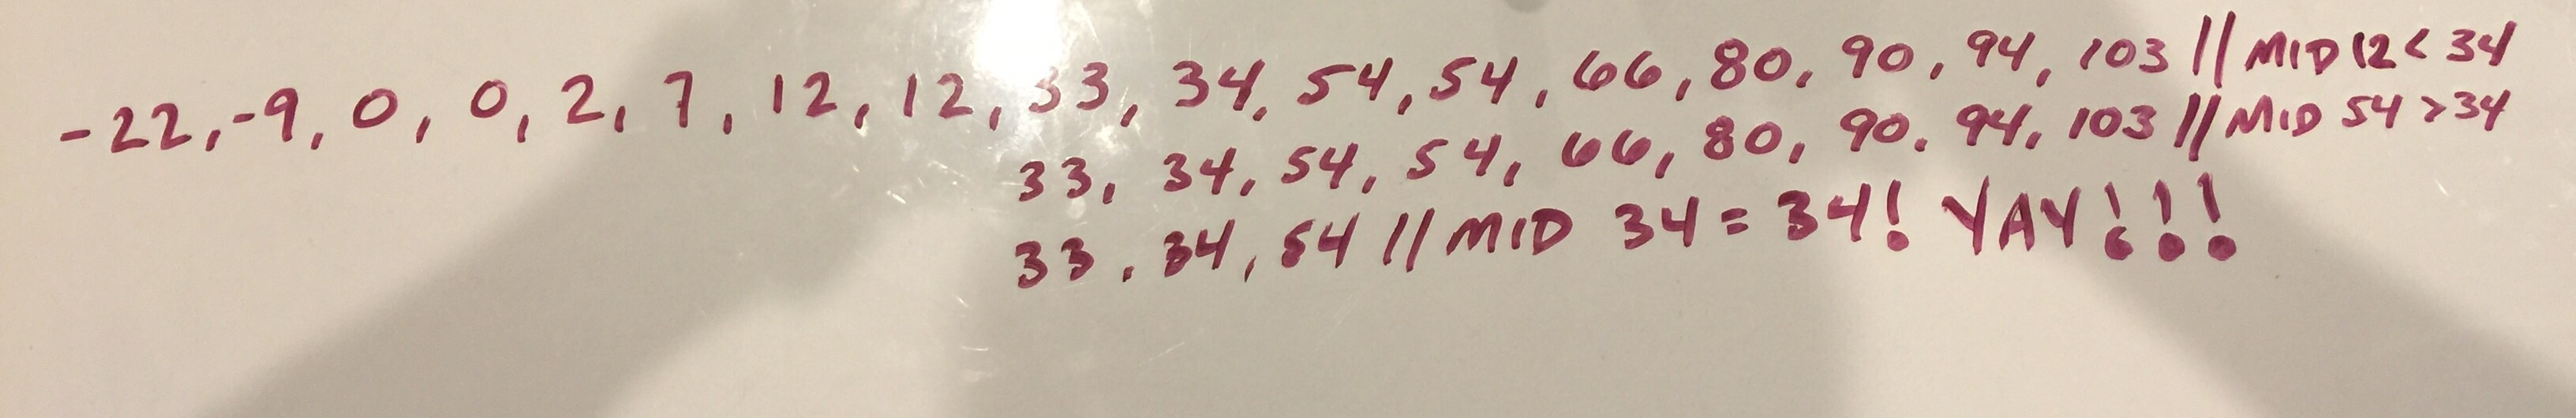 -22, -9, 0, 0, 2, 7, 12, 12, 33, 34, 54, 54, 66, 80, 90, 94, 103 // MID 12 < 34
33, 34, 54, 54, 66, 80, 90, 94, 103 // MID 54 > 34
33, 34, 54 // MID 34 = 34! YAY!!!